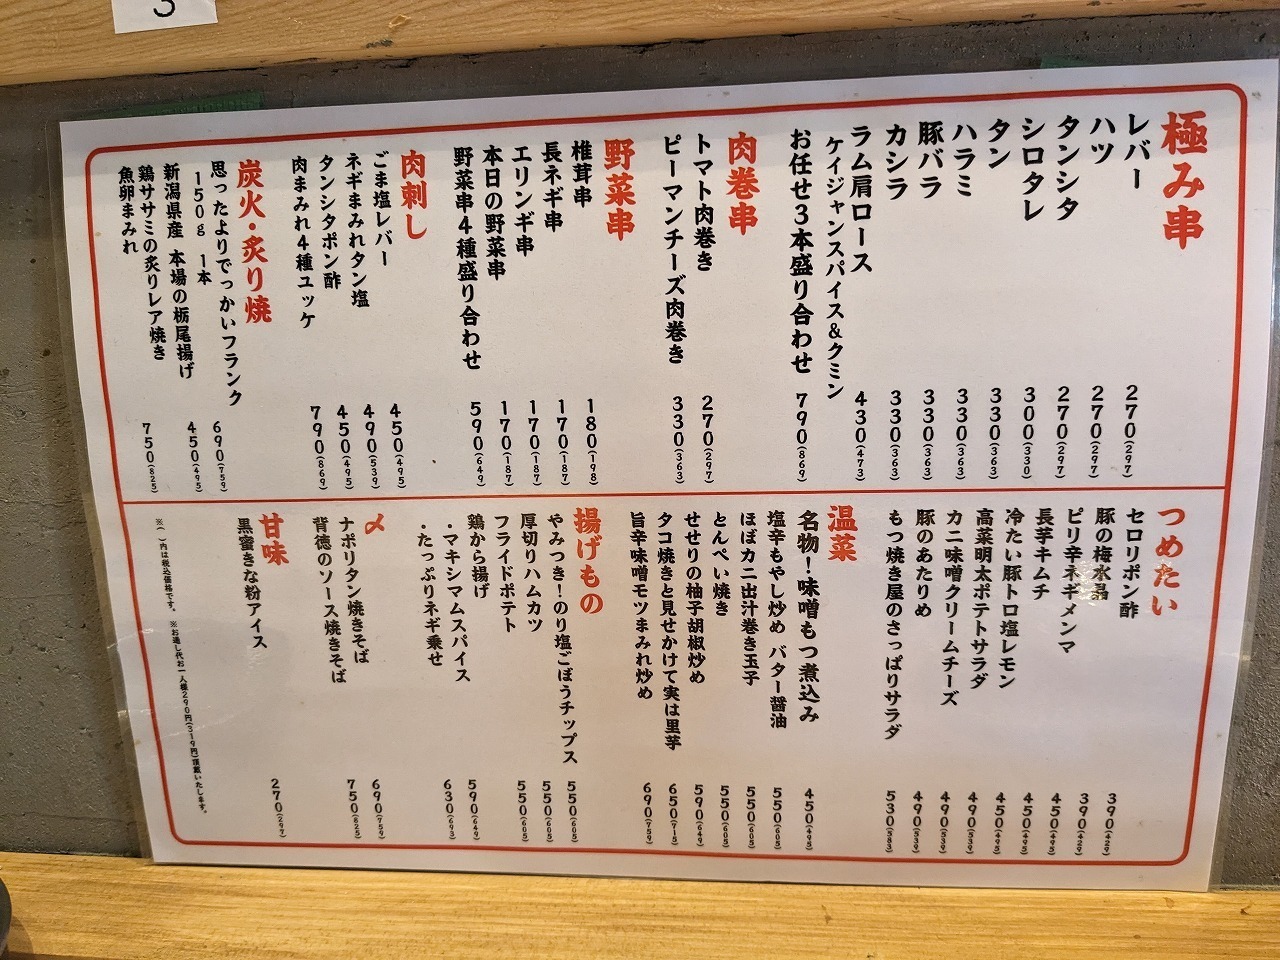 3
極み串
レバー 270(297)
ハツ 270(297)
タンシタ 270(297)
シロタレ 300(330)
タン 330(363)
ハラミ 330(363)
豚バラ 330(363)
カシラ 330(363)
ラム肩ロース 430(473)
ケイジャンスパイス&クミン
お任せ3本盛り合わせ 790(869)
肉巻串
トマト肉巻き 270(297)
ピーマンチーズ肉巻き 330(363)
野菜串
椎茸串 180(198)
長ネギ串 170(187)
エリンギ串 170(187)
本日の野菜串 170(187)
野菜串4種盛り合わせ 590(649)
肉刺し
ごま塩レバー 450(495)
ネギまみれタン塩 490(539)
タンシタポン酢 450(495)
肉まみれ4種ユッケ 790(869)
炭火・炙り焼
思ったよりでっかいフランク
150g 1本 690(759)
新潟県産 本場の栃尾揚げ 450(495)
鶏ササミの炙りレア焼き
魚卵まみれ 750(825)
つめたい
セロリポン酢 390(429)
豚の梅水晶 390(429)
ピリ辛ネギメンマ 450(495)
長芋キムチ 450(495)
冷たい豚トロ塩レモン 450(495)
高菜明太ポテトサラダ 490(539)
カニ味噌クリームチーズ 490(539)
豚のあたりめ 490(539)
もつ焼き屋のさっぱりサラダ 530(583)
温菜
名物!味噌もつ煮込み 450(495)
塩辛もやし炒め バター醤油 550(605)
ほぼカニ出汁巻き玉子 550(605)
とんぺい焼き 550(605)
せせりの柚子胡椒炒め 590(649)
タコ焼きと見せかけて実は里芋 650(715)
旨辛味噌モツまみれ炒め 690(759)
揚げもの
やみつき!のり塩ごぼうチップス 550(605)
厚切りハムカツ 550(605)
フライドポテト 550(605)
鶏から揚げ 590(649)
・マキシマムスパイス
・たっぷりネギ乗せ 630(693)
〆
ナポリタン焼きそば 690(759)
背徳のソース焼きそば 750(825)
甘味
黒蜜きな粉アイス 270(297)
※( )内は税込価格です。 ※お通し代お一人様290円(319円)頂戴いたします。